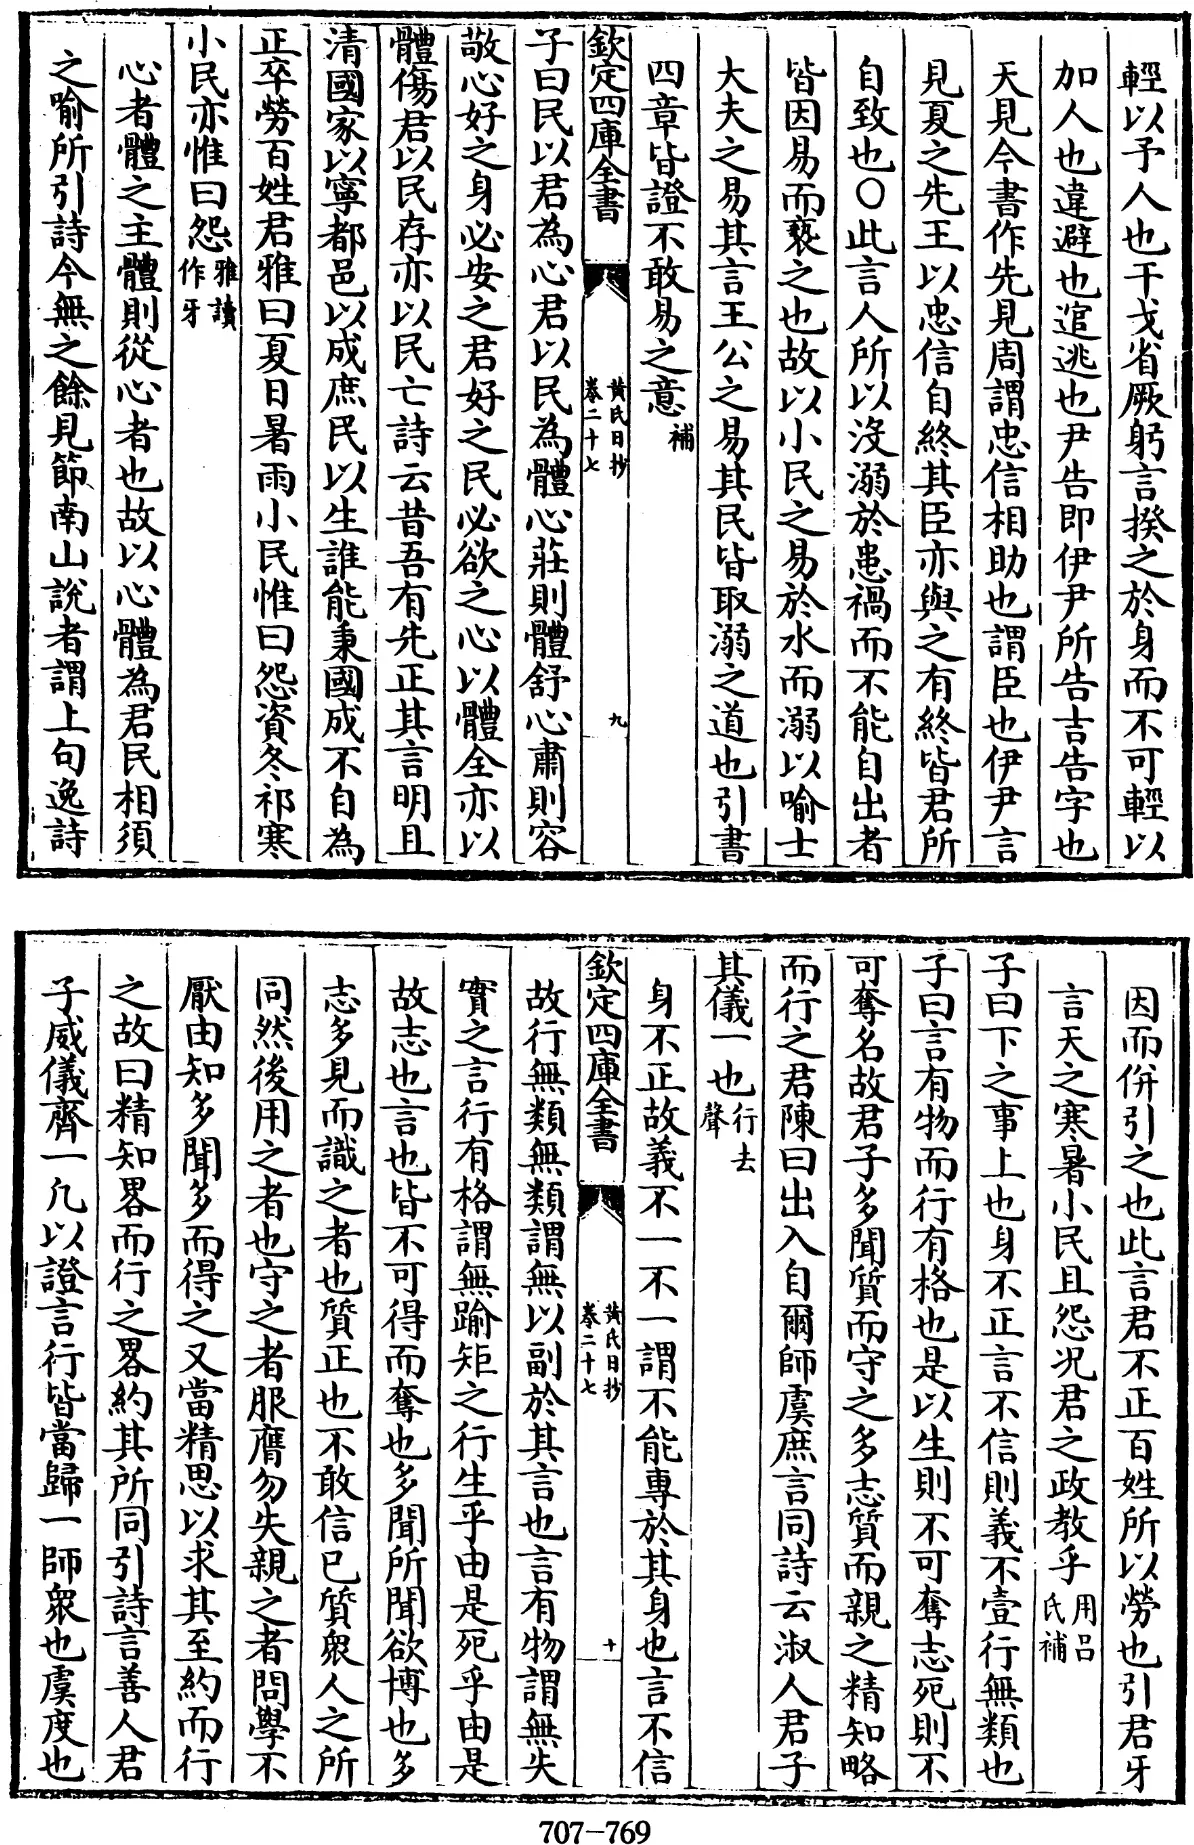 輕以予人也干戈省厥躬言揆之於身而不可輕以
加人也違避也逭逃也尹告即伊尹所告吉告字也
天見今書作先見周謂忠信相助也謂臣也伊尹言
見夏之先王以忠信自終其臣亦與之有終皆君所
自致也〇此言人所以沒溺於患禍而不能自出者
皆因易而褻之也故以小民之易於水而溺以喻士
大夫之易其言王公之易其民皆取溺之道也引書
四章皆證不敢易之意補
欽定四庫全書 黃氏日抄 卷二十七 九
子曰民以君為心君以民為體心莊則體舒心肅則容
敬心好之身必安之君好之民必欲之心以體全亦以
體傷君以民存亦以民亡詩云昔吾有先正其言明且
清國家以寧都邑以成庶民以生誰能秉國成不自為
正卒勞百姓君雅曰夏日暑雨小民惟曰怨資冬祁寒
小民亦惟曰怨雅讀作牙
心者體之主體則從心者也故以心體為君民相須
之喻所引詩今無之餘見節南山說者謂上句逸詩
因而併引之也此言君不正百姓所以勞也引君牙
言天之寒暑小民且怨况君之政教乎用呂氏補
子曰下之事上也身不正言不信則義不壹行無類也
子曰言有物而行有格也是以生則不可奪志死則不
可奪名故君子多聞質而守之多志質而親之精知略
而行之君陳曰出入自爾師虞庶言同詩云淑人君子
其儀一也行去聲
身不正故義不一不一謂不能專於其身也言不信
欽定四庫全書 黃氏日抄 卷二十七 十
故行無類無類謂無以副於其言也言有物謂無失
實之言行有格謂無踰矩之行生乎由是死乎由是
故志也言也皆不可得而奪也多聞所聞欲博也多
志多見而識之者也質正也不敢信已質衆人之所
同然後用之者也守之者服膺勿失親之者問學不
厭由知多聞多而得之又當精思以求其至約而行
之故曰精知畧而行之畧約其所同引詩言善人君
子威儀齊一凡以證言行皆當歸一師衆也虞度也
707-769